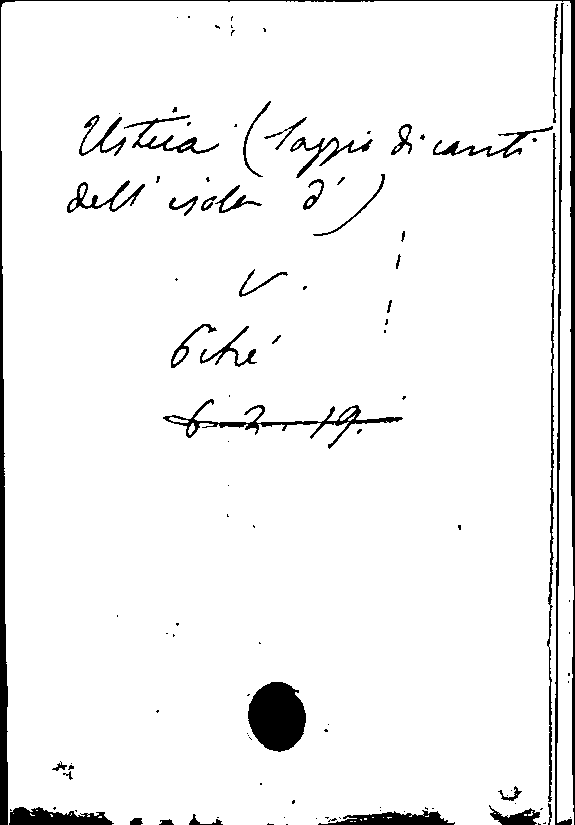 Ustica (Saggio di canti
dell' isola d')
V.
Pitré
6-2.19.